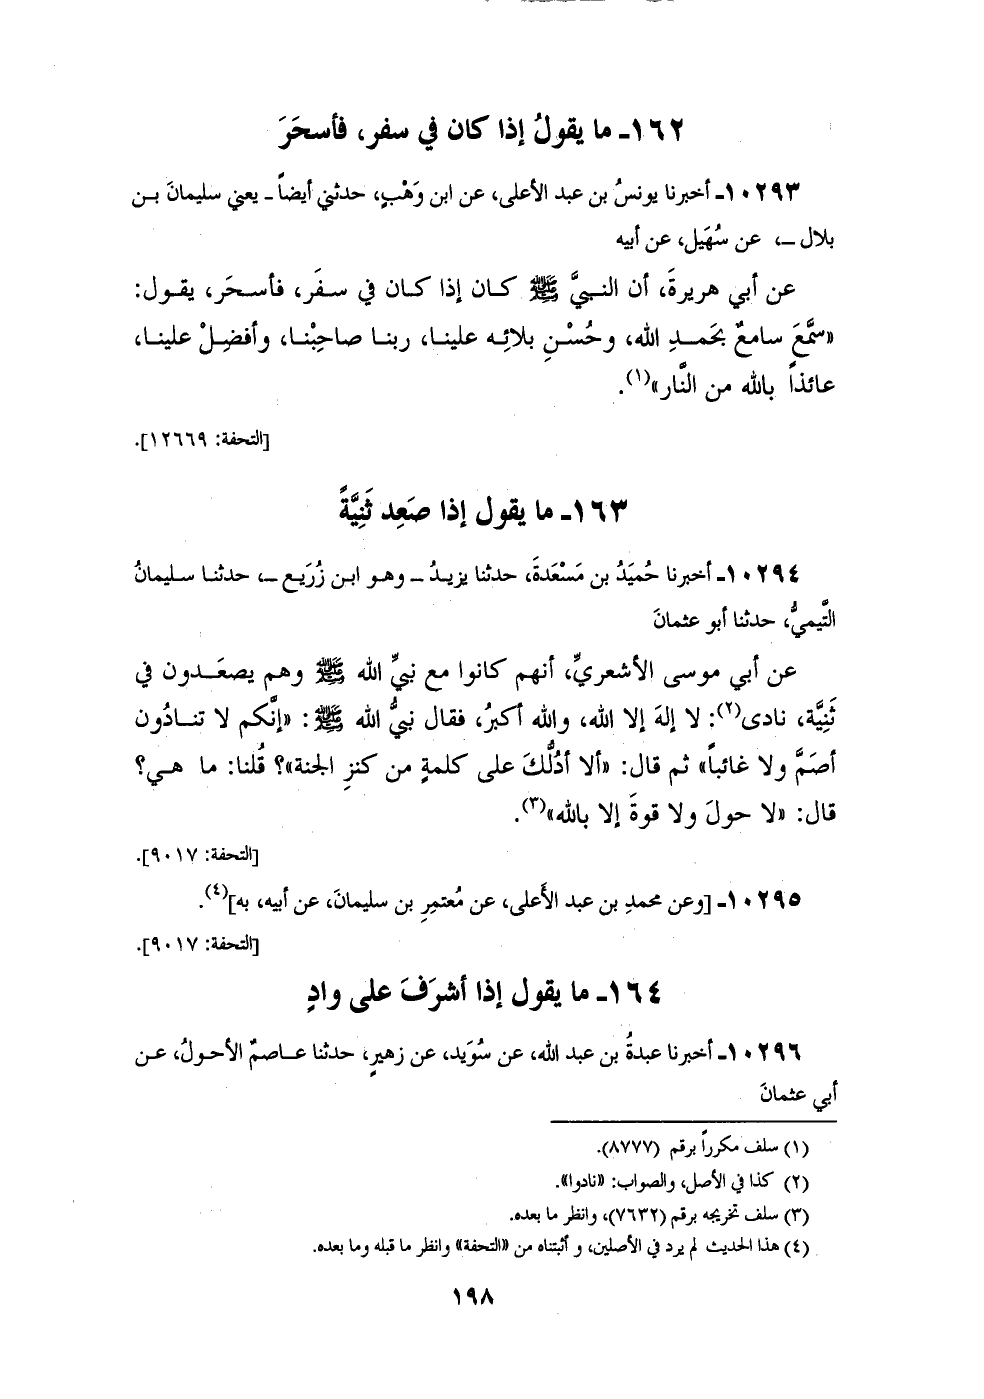 ١٦٢ـ ما يقولُ إذا كان في سفر، فأسحَرَ
١٠٢٩٣ـ أخبرنا يونسُ بن عبد الأعلى، عن ابن وَهْبٍ، حدثني أيضاً ـ يعني سليمانَ بـن
بلال ـ، عن سُهَيل، عن أبيه
عن أبي هريرةَ، أن النـبيَّ ﷺ كـان إذا كـان في سـفَر، فأسـحَر، يقـول:
«سَّمَعَ سامعٌ بحَمـدِ الله، وحُسْـنِ بلائِـه علينـا، ربنـا صاحِبْنـا، وأفضِـلْ علينـا،
عائذاً بالله من النَّار»(١).
[التحفة: ١٢٦٦٩].
١٦٣ـ ما يقول إذا صَعِد ثَنِيَّةً
١٠٢٩٤ـ أخبرنا حُمَيدُ بن مَسْعَدةَ، حدثنا يزيـدُ ـ وهـو ابـن زُرَيـع ـ، حدثنـا سـليمانُ
التَّيميُّ، حدثنا أبو عثمانَ
عن أبي موسى الأشعريِّ، أنهم كانوا مع نبيِّ الله ﷺ وهم يصعَـدون في
ثَنِيَّة، نادى(٢): لا إلهَ إلا الله، والله أكبرُ، فقال نبيُّ الله ﷺ: «إنَّكم لا تنـادُون
أصَمَّ ولا غائباً» ثم قال: «ألا أدُلُّكَ على كلمةٍ من كنزِ الجنة»؟ قُلنا: ما هـي؟
قال: «لا حولَ ولا قوةَ إلا بالله»(٣).
[التحفة: ٩٠١٧].
١٠٢٩٥ـ [وعن محمدِ بن عبد الأَعلى، عن مُعتمِرِ بن سليمانَ، عن أبيه، به](٤).
[التحفة: ٩٠١٧].
١٦٤ـ ما يقول إذا أشرَفَ على وادٍ
١٠٢٩٦ـ أخبرنا عبدةُ بن عبد الله، عن سُوَيد، عن زهيرٍ، حدثنا عـاصمٌ الأحولُ، عـن
أبي عثمانَ
(١) سلف مكرراً برقم (٨٧٧٧).
(٢) كذا في الأصل، والصواب: «نادوا».
(٣) سلف تخريجه برقم (٧٦٣٢)، وانظر ما بعده.
(٤) هذا الحديث لم يرد في الأصلين، و أثبتناه من «التحفة» وانظر ما قبله وما بعده.
١٩٨